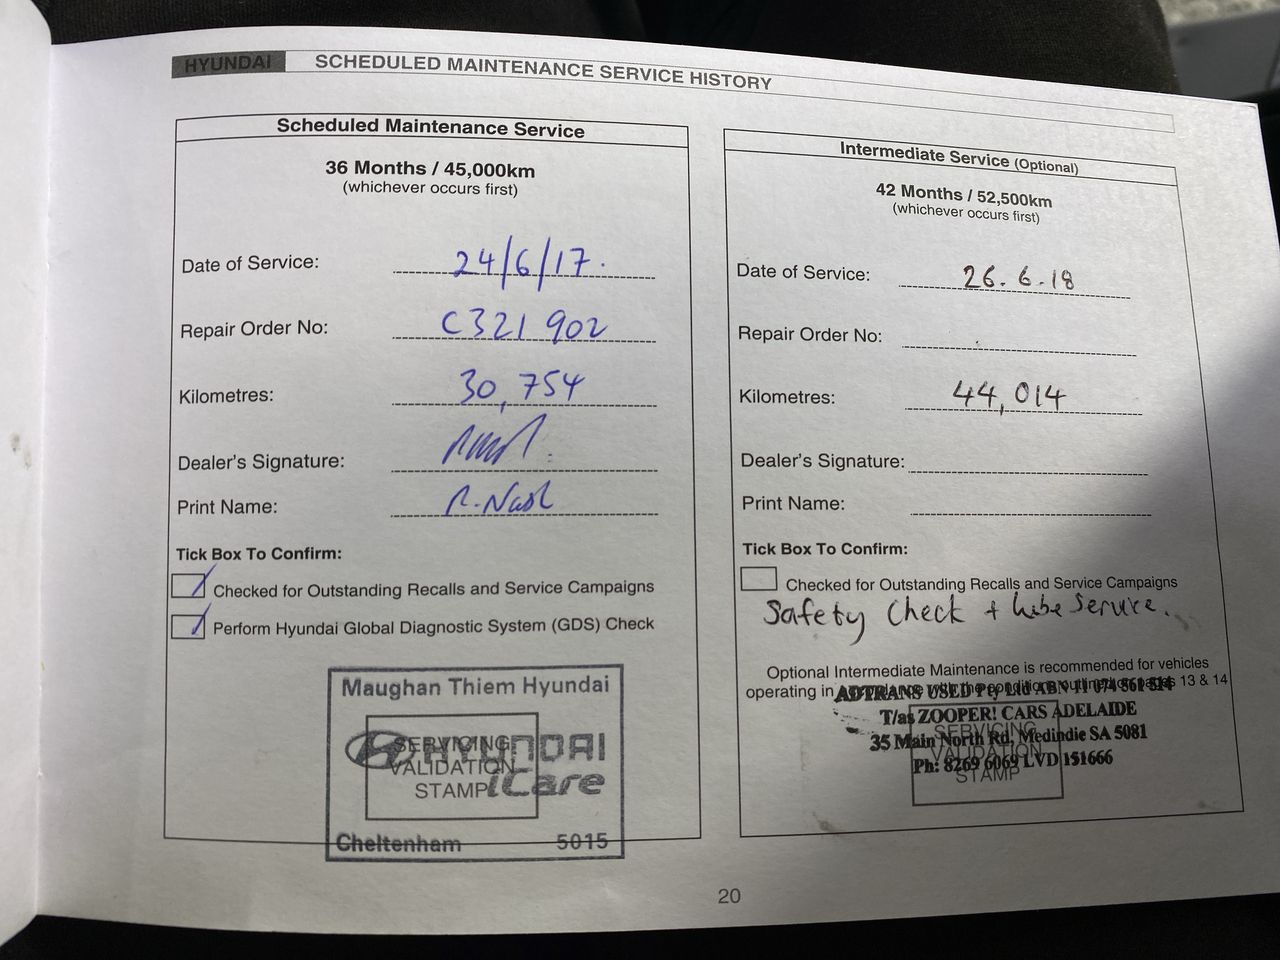 HYUNDAI SCHEDULED MAINTENANCE SERVICE HISTORY
Scheduled Maintenance Service
36 Months / 45,000km
(whichever occurs first)
Date of Service: 24/6/17.
Repair Order No: C321 902
Kilometres: 30,754
Dealer's Signature:
Print Name: R. Nash
Tick Box To Confirm:
Checked for Outstanding Recalls and Service Campaigns
Perform Hyundai Global Diagnostic System (GDS) Check
Maughan Thiem Hyundai
HYUNDAI
iCare
SERVICING
VALIDATION
STAMP
Cheltenham 5015
Intermediate Service (Optional)
42 Months / 52,500km
(whichever occurs first)
Date of Service: 26.6.18
Repair Order No:
Kilometres: 44,014
Dealer's Signature:
Print Name:
Tick Box To Confirm:
Checked for Outstanding Recalls and Service Campaigns
Safety Check + Lube Service.
Optional Intermediate Maintenance is recommended for vehicles
operating in 13 & 14
ADTRANS USED Pty Ltd ABN 11 074 561 514
T/as ZOOPER! CARS ADELAIDE
35 Main North Rd, Medindie SA 5081
Ph: 8269 6069 LVD 151666
SERVICING
VALIDATION
STAMP
20